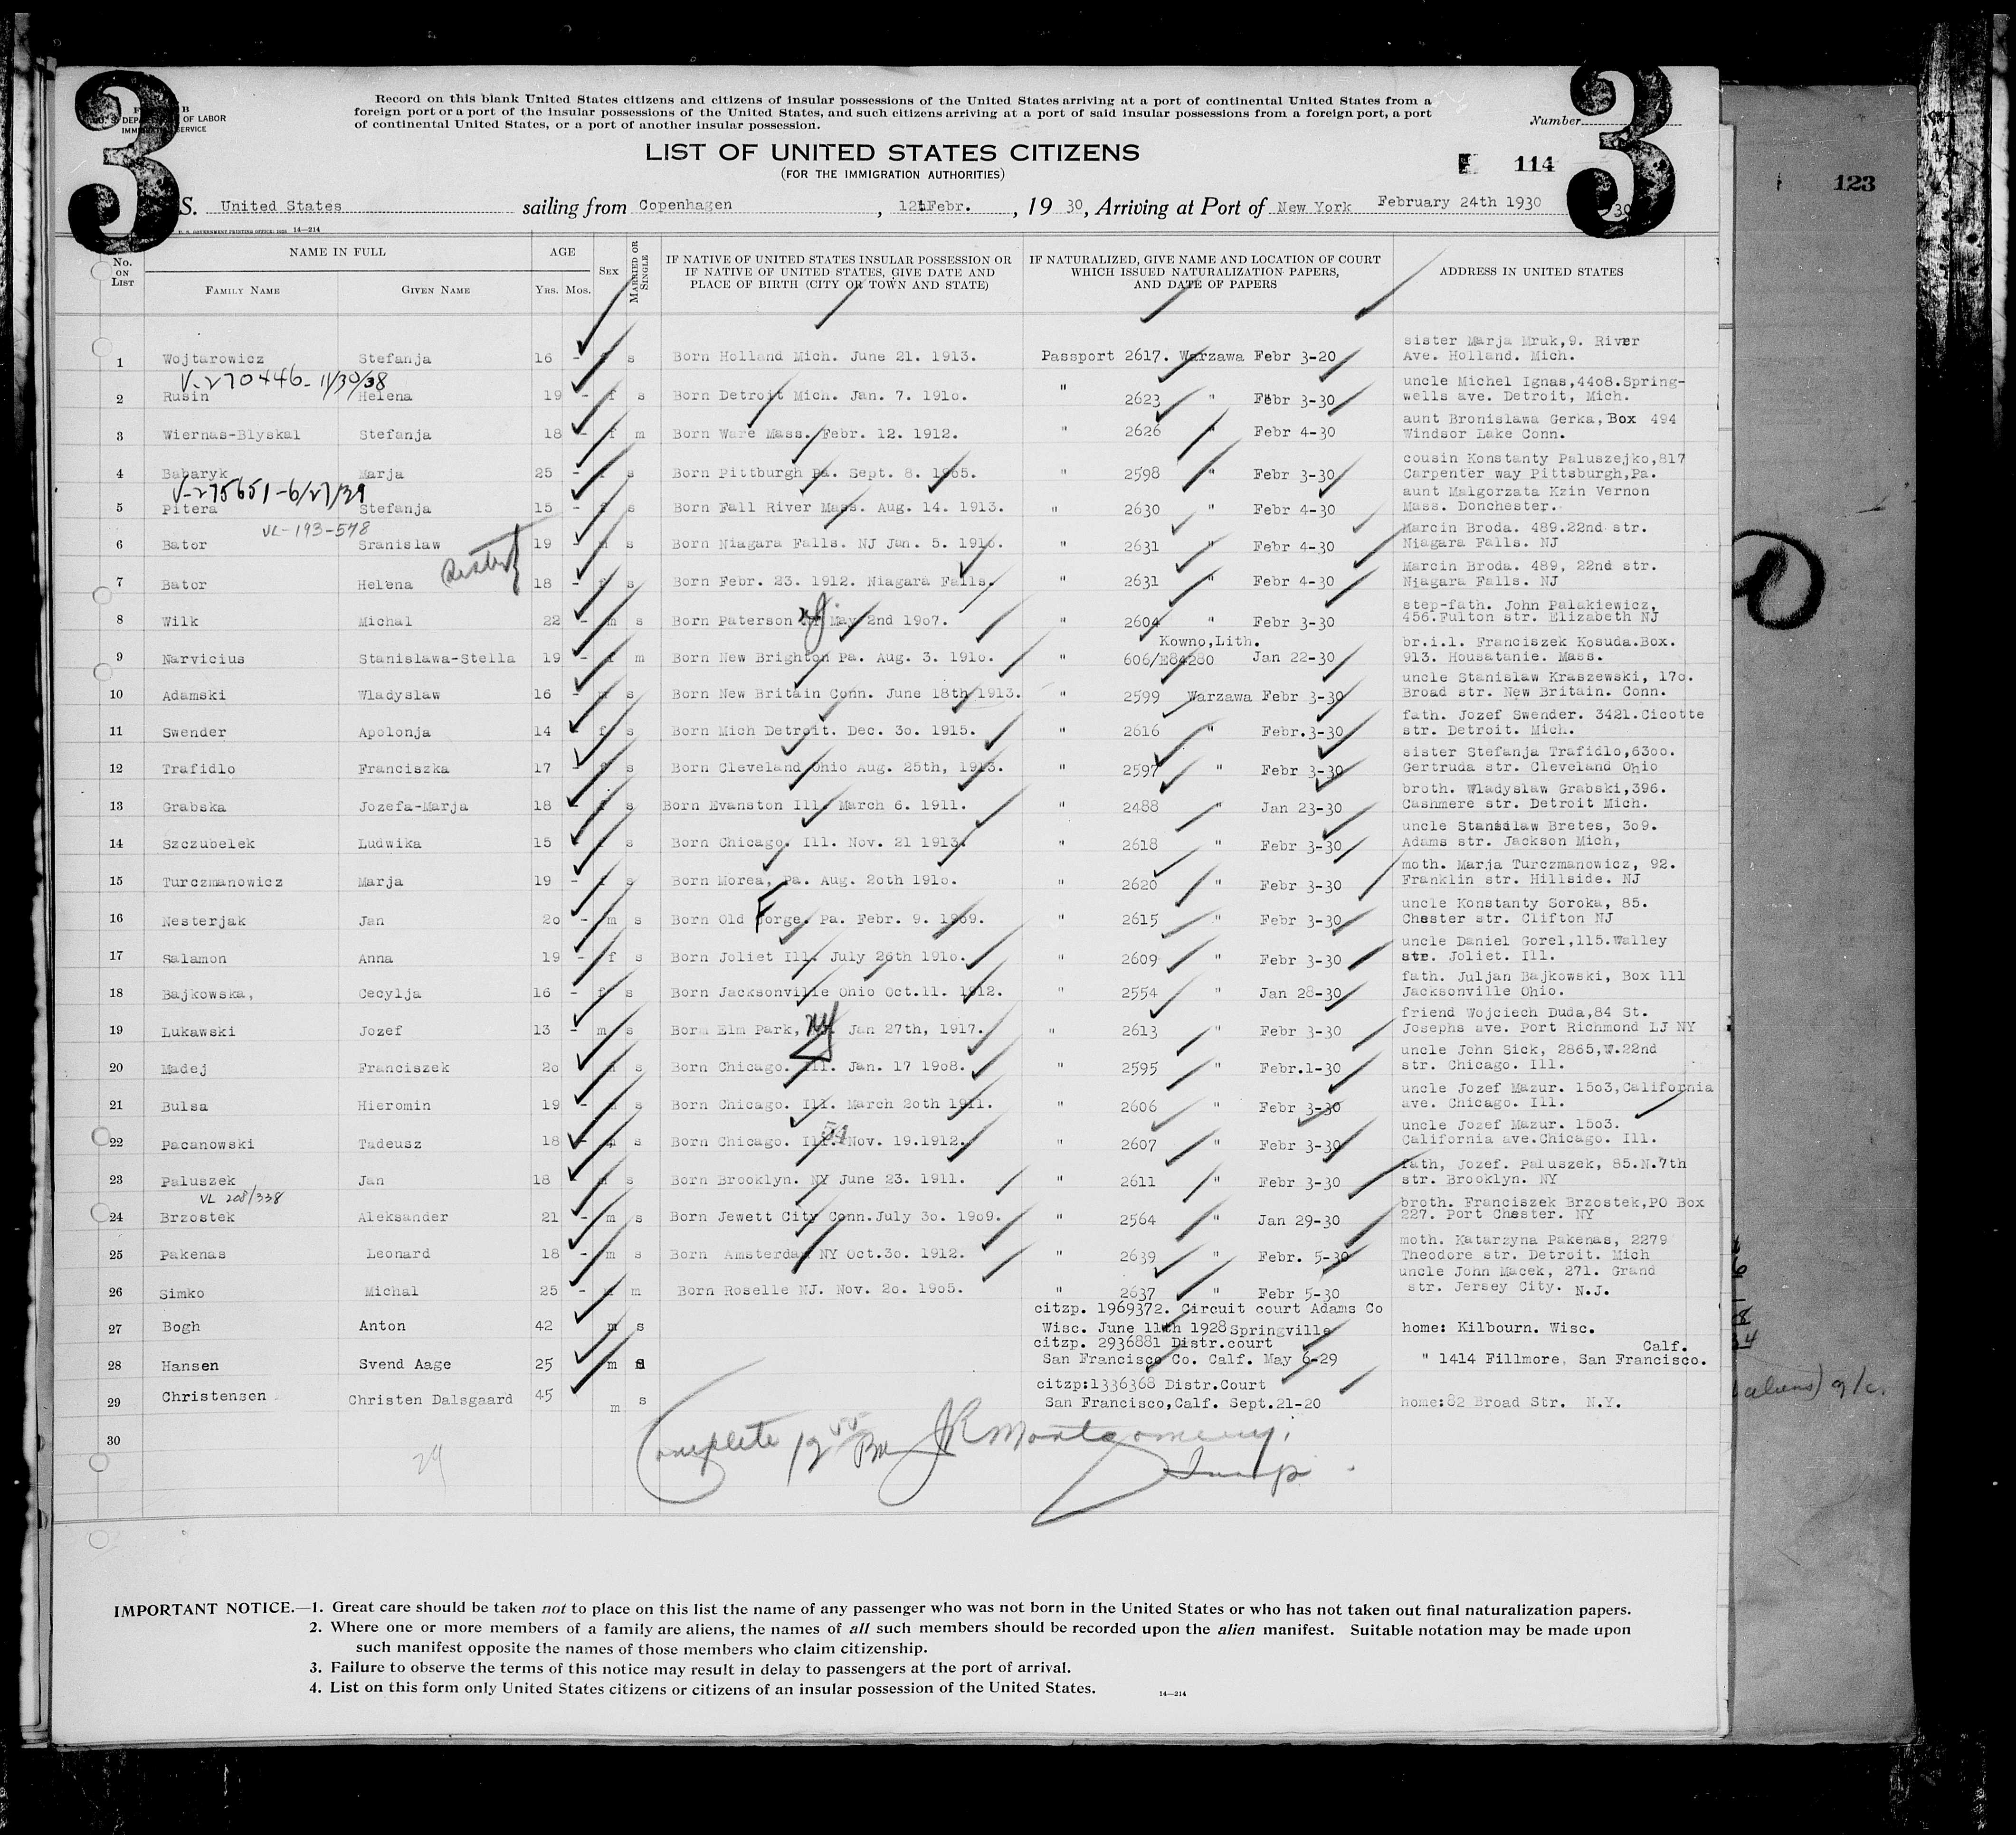 3
3
Record on this blank United States citizens and citizens of insular possessions of the United States arriving at a port of continental United States from a
foreign port or a port of the insular possessions of the United States, and such citizens arriving at a port of said insular possessions from a foreign port, a port
of continental United States, or a port of another insular possession.
OF LABOR
Number
LIST OF UNITED STATES CITIZENS
(FOR THE IMMIGRATION AUTHORITIES)
114
123
S. United States sailing from Copenhagen , 12 Febr. , 19 30, Arriving at Port of New York February 24th 1930
14—214
No. ON LIST
NAME IN FULL
AGE
SEX
MARRIED OR SINGLE
IF NATIVE OF UNITED STATES INSULAR POSSESSION OR
IF NATIVE OF UNITED STATES, GIVE DATE AND
PLACE OF BIRTH (CITY OR TOWN AND STATE)
IF NATURALIZED, GIVE NAME AND LOCATION OF COURT
WHICH ISSUED NATURALIZATION PAPERS,
AND DATE OF PAPERS
ADDRESS IN UNITED STATES
FAMILY NAME GIVEN NAME YRS. MOS.
sister Marja Mruk,9. River
1 Wojtarowicz Stefanja 16 - f s Born Holland Mich. June 21. 1913. Passport 2617. Warzawa Febr 3-20 Ave. Holland. Mich.
V-270446-11/30/38
uncle Michel Ignas,44o8.Spring-
2 Rusin Helena 19 - f s Born Detroit Mich. Jan. 7. 191o. " 2623 " Febr 3-30 wells ave. Detroit, Mich.
aunt Bronislawa Gerka, Box 494
3 Wiernas-Blyskal Stefanja 18 - f m Born Ware Mass. Febr. 12. 1912. " 2626 " Febr 4-30 Windsor Lake Conn.
cousin Konstanty Paluszejko,817
4 Babaryk Marja 25 - f s Born Pittburgh Pa. Sept. 8. 19o5. " 2598 " Febr 3-30 Carpenter way Pittsburgh,Pa.
V-275651-6/27/39
aunt Malgorzata Kzin Vernon
5 Pitera Stefanja 15 - f s Born Fall River Mass. Aug. 14. 1913. " 2630 " Febr 4-30 Mass. Donchester.
VL-193-578
Marcin Broda. 489.22nd str.
6 Bator Sranislaw 19 - m s Born Niagara Falls. NJ Jan. 5. 191o. " 2631 " Febr 4-30 Niagara Falls. NJ
Marcin Broda. 489, 22nd str.
7 Bator Helena 18 - f s Born Febr. 23. 1912. Niagara Falls. " 2631 " Febr 4-30 Niagara Falls. NJ
step-fath. John Palakiewicz,
8 Wilk Michal 22 - m s Born Paterson NJ May 2nd 19o7. " 2604 " Febr 3-30 456.Fulton str. Elizabeth NJ
Kowno,Lith. br.i.l. Franciszek Kosuda.Box.
9 Narvicius Stanislawa-Stella 19 - f m Born New Brighton Pa. Aug. 3. 191o. " 606/E84280 Jan 22-30 913. Housatanie. Mass.
uncle Stanislaw Kraszewski, 17o.
10 Adamski Wladyslaw 16 - m s Born New Britain Conn. June 18th 1913. " 2599 Warzawa Febr 3-30 Broad str. New Britain. Conn.
fath. Jozef Swender. 3421.Cicotte
11 Swender Apolonja 14 f s Born Mich Detroit. Dec. 3o. 1915. " 2616 " Febr.3-30 str. Detroit. Mich.
sister Stefanja Trafidlo,63oo.
12 Trafidlo Franciszka 17 - f s Born Cleveland Ohio Aug. 25th, 1913. " 2597 " Febr 3-30 Gertruda str. Cleveland Ohio
broth. Wladyslaw Grabski,396.
13 Grabska Jozefa-Marja 18 - f s Born Evanston Ill. March 6. 1911. " 2488 " Jan 23-30 Cashmere str. Detroit Mich.
uncle Stanislaw Bretes, 3o9.
14 Szczubelek Ludwika 15 f s Born Chicago. Ill. Nov. 21 1913. " 2618 " Febr 3-30 Adams str. Jackson Mich,
moth. Marja Turczmanowicz, 92.
15 Turczmanowicz Marja 19 - f s Born Morea, Pa. Aug. 2oth 191o. " 2620 " Febr 3-30 Franklin str. Hillside. NJ
uncle Konstanty Soroka, 85.
16 Nesterjak Jan 2o - m s Born Old Forge. Pa. Febr. 9. 19o9. " 2615 " Febr 3-30 Chester str. Clifton NJ
uncle Daniel Gorel,115.Walley
17 Salamon Anna 19 - f s Born Joliet Ill. July 26th 191o. " 2609 " Febr 3-30 str. Joliet. Ill.
fath. Juljan Bajkowski, Box 111
18 Bajkowska, Cecylja 16 - f s Born Jacksonville Ohio Oct.11. 1912. " 2554 " Jan 28-30 Jacksonville Ohio.
friend Wojciech Duda,84 St.
19 Lukawski Jozef 13 - m s Born Elm Park, NY Jan 27th, 1917. " 2613 " Febr 3-30 Josephs ave. Port Richmond LJ NY
uncle John Sick, 2865,W.22nd
20 Madej Franciszek 2o m s Born Chicago. Ill. Jan. 17 19o8. " 2595 " Febr.1-30 str. Chicago. Ill.
uncle Jozef Mazur. 15o3,California
21 Bulsa Hieromin 19 - m s Born Chicago. Ill. March 2oth 1911. " 2606 " Febr 3-30 ave. Chicago. Ill.
uncle Jozef Mazur. 15o3.
22 Pacanowski Tadeusz 18 m s Born Chicago. Ill. Nov. 19.1912. " 2607 " Febr 3-30 California ave.Chicago. Ill.
fath, Jozef. Paluszek, 85.N.7th
23 Paluszek Jan 18 m s Born Brooklyn. NY June 23. 1911. " 2611 " Febr 3-30 str. Brooklyn. NY
VL 208/338
broth. Franciszek Brzostek,PO Box
24 Brzostek Aleksander 21 - m s Born Jewett City Conn.July 3o. 19o9. " 2564 " Jan 29-30 227. Port Chester. NY
moth. Katarzyna Pakenas, 2279
25 Pakenas Leonard 18 - m s Born Amsterdam NY Oct.3o. 1912. " 2639 " Febr. 5-30 Theodore str. Detroit. Mich
uncle John Macek, 271. Grand
26 Simko Michal 25 - m m Born Roselle NJ. Nov. 2o. 19o5. " 2637 " Febr 5-30 str. Jersey City. N.J.
citzp. 1969372. Circuit court Adams Co
27 Bogh Anton 42 m s Wisc. June 11th 1928 Springville home: Kilbourn. Wisc.
citzp. 2936881 Distr.court Calf.
28 Hansen Svend Aage 25 m s San Francisco Co. Calf. May 6-29 " 1414 Fillmore, San Francisco.
citzp:1336368 Distr.Court
29 Christensen Christen Dalsgaard 45 m s San Francisco,Calf. Sept.21-20 home:82 Broad Str. N.Y.
30
29
Complete 12 PM JR Montgomery,
Insp.
IMPORTANT NOTICE.—1. Great care should be taken not to place on this list the name of any passenger who was not born in the United States or who has not taken out final naturalization papers.
2. Where one or more members of a family are aliens, the names of all such members should be recorded upon the alien manifest. Suitable notation may be made upon
such manifest opposite the names of those members who claim citizenship.
3. Failure to observe the terms of this notice may result in delay to passengers at the port of arrival.
4. List on this form only United States citizens or citizens of an insular possession of the United States.
14—214